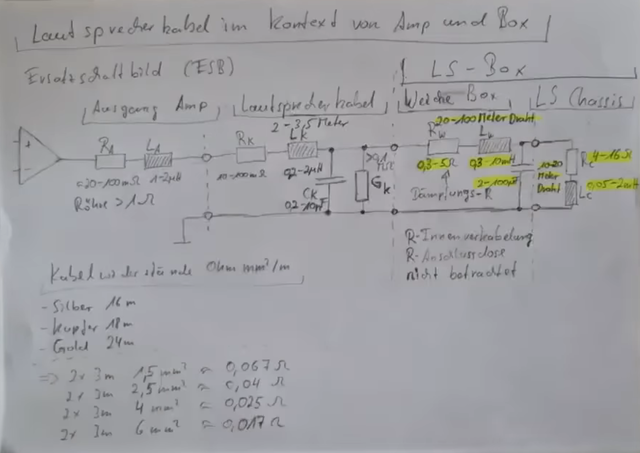 Lautsprecherkabel im Kontext von Amp und Box
Ersatzschaltbild (ESB)
LS-Box
Ausgang Amp
Lautsprecherkabel
Weiche Box
LS Chassis
2-3,5 Meter
20-100 Meter Draht
RA
LA
RK
LK
RW
=20-100mΩ
1-2µH
Röhre >1Ω
10-100mΩ
CK
GK
0,3-5Ω
0,3-10mH
2-100µF
Dämpfungs-R
10-20
Meter
Draht
4-16Ω
LC
R-Innenverkabelung
R-Anschlussdose
nicht betrachtet
Kabelwiderstände Ohm mm²/m
- Silber 16m
- Kupfer 18m
- Gold 24m
=> 2x 3m 1,5 mm² ≈ 0,067 Ω
2x 3m 2,5 mm² ≈ 0,04 Ω
2x 3m 4 mm² ≈ 0,025 Ω
2x 3m 6 mm² ≈ 0,017 Ω